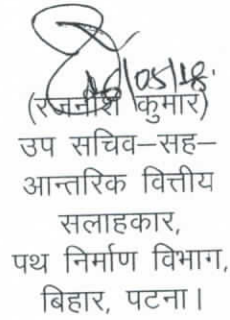 26/05/18.
(रजनीश कुमार)
उप सचिव–सह–
आन्तरिक वित्तीय
सलाहकार,
पथ निर्माण विभाग,
बिहार, पटना।